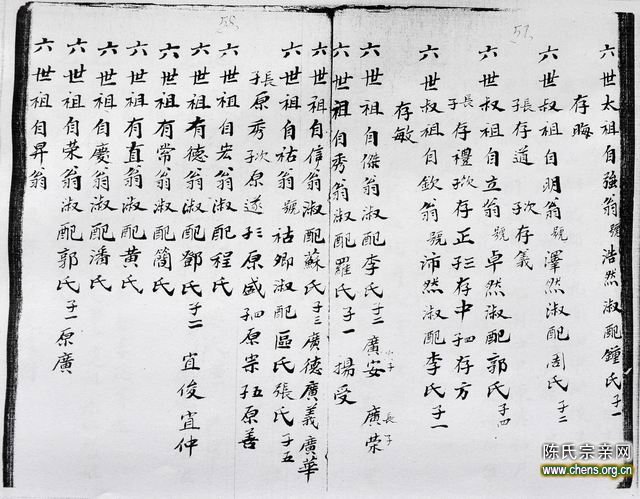 57
六世太祖自強翁號浩然淑配鍾氏子一
存晦
六世叔祖自明翁號澤然淑配周氏子二
長子存道次子存義
六世叔祖自立翁號卓然淑配郭氏子四
長子存禮次子存正三子存中四子存方
六世叔祖自欽翁號沛然淑配李氏子一
存敏
58
六世祖自傑翁淑配李氏子二廣安小子廣荣長子
六世祖自秀翁淑配羅氏子一揚受
六世祖自信翁淑配蘇氏子三廣德廣義廣華
六世祖自祜翁號祜卿淑配區氏張氏子五
長子原秀次子原遂三子原盛四子原崇五子原善
六世祖自宏翁淑配程氏
六世祖有德翁淑配鄧氏子二宜俊宜仲
六世祖有常翁淑配簡氏
六世祖有直翁淑配黄氏
六世祖自慶翁淑配潘氏
六世祖自荣翁淑配郭氏子一原廣
六世祖自昇翁
陈氏宗亲网
www.chens.org.cn